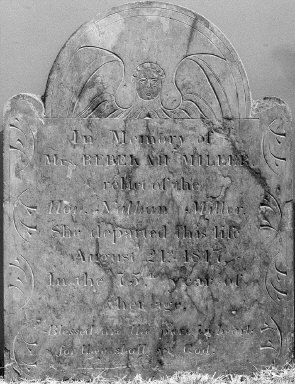 In Memory of
Mrs. REBEKAH MILLER,
relict of the
Hon. Nathan Miller.
She departed this life
August 21st. 1817.
In the 75th. year of
her age.
Blessed are the pure in heart
for they shall see God.